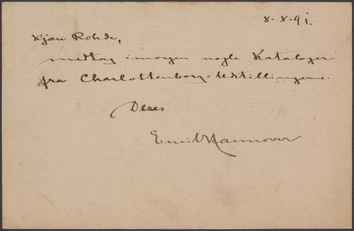 8-8-91.
Kjære Rohde,
medtag imorgen nogle Kataloger
fra Charlottenborg-Udstillingerne.
Deres
Emil Hannover